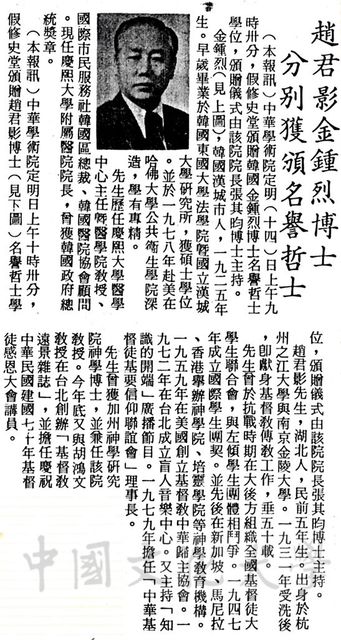 趙君影金鍾烈博士
分別獲頒名譽哲士
（本報訊）中華學術院定明（十四）日上午九
時卅分，假修史堂頒贈韓國金鍾烈博士名譽哲士
學位，頒贈儀式由該院院長張其昀博士主持。
金鍾烈（見上圖），韓國漢城市人，一九二五年
生。早歲畢業於韓國東國大學法學院暨國立漢城
大學研究所，獲碩士學位
。並於一九七八年赴美在
哈佛大學公共衛生學院深
造，學有專精。
先生歷任慶熙大學醫學
中心主任暨醫學院教授、
國際市民服務社韓國區總裁、韓國醫院協會顧問
。現任慶熙大學附屬醫院院長，曾獲韓國政府總
統獎章。
（本報訊）中華學術院定明日上午十時卅分，
假修史堂頒贈趙君影博士（見下圖）名譽哲士學
位，頒贈儀式由該院院長張其昀博士主持。
趙君影先生，湖北人，民前五年生。出身於杭
州之江大學與南京金陵大學。一九三一年受洗後
卽獻身基督教傳教工作，垂五十載。
先生曾於抗戰時期在大後方組織全國基督徒大
學生聯合會，與左傾學生團體相鬥爭。一九四七
年成立國際學生團契。並先後在新加坡、馬尼拉
、香港舉辦神學院、培靈學院等神學教育機構。
一九五九年在美國創立基督教中華歸主協會。一
九七二年在台北成立盲人音樂中心。又主持「知
識的開端」廣播節目。一九七九年擔任「中華基
督徒基要信仰聯誼會」理事長。
先生曾獲加州神學研究
院神學博士，並兼任該院
教授。今年底又與胡鴻文
教授在台北創辦「基督教
遠景雜誌」，並擔任慶祝
中華民國建國七十年基督
徒感恩大會講員。
中國文化大學